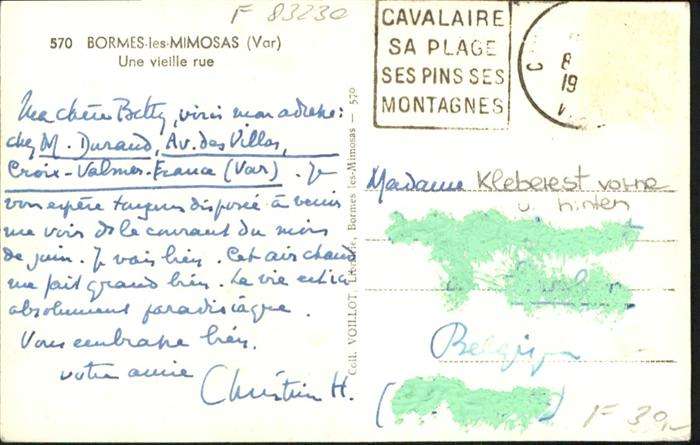 F 83230
570 BORMES-les-MIMOSAS (Var)
Une vieille rue
CAVALAIRE
SA PLAGE
SES PINS SES
MONTAGNES
8
19
Ma chère Betty, voici mon adresse:
chez M. Durand, Av. des Villas,
Croix-Valmer-France (Var). Je
vous espère toujours disposée à venir
me voir ds le courant du mois
de juin. Je vais bien. Cet air chaud
me fait grand bien. La vie est ici
absolument paradisiaque.
Vous embrasse bien.
votre amie
Christian H.
Coll. VOILLOT, Librairie, Bormes les-Mimosas — 570
Madame Kleberest vorne
u. hinten
Belgique
F 30,-